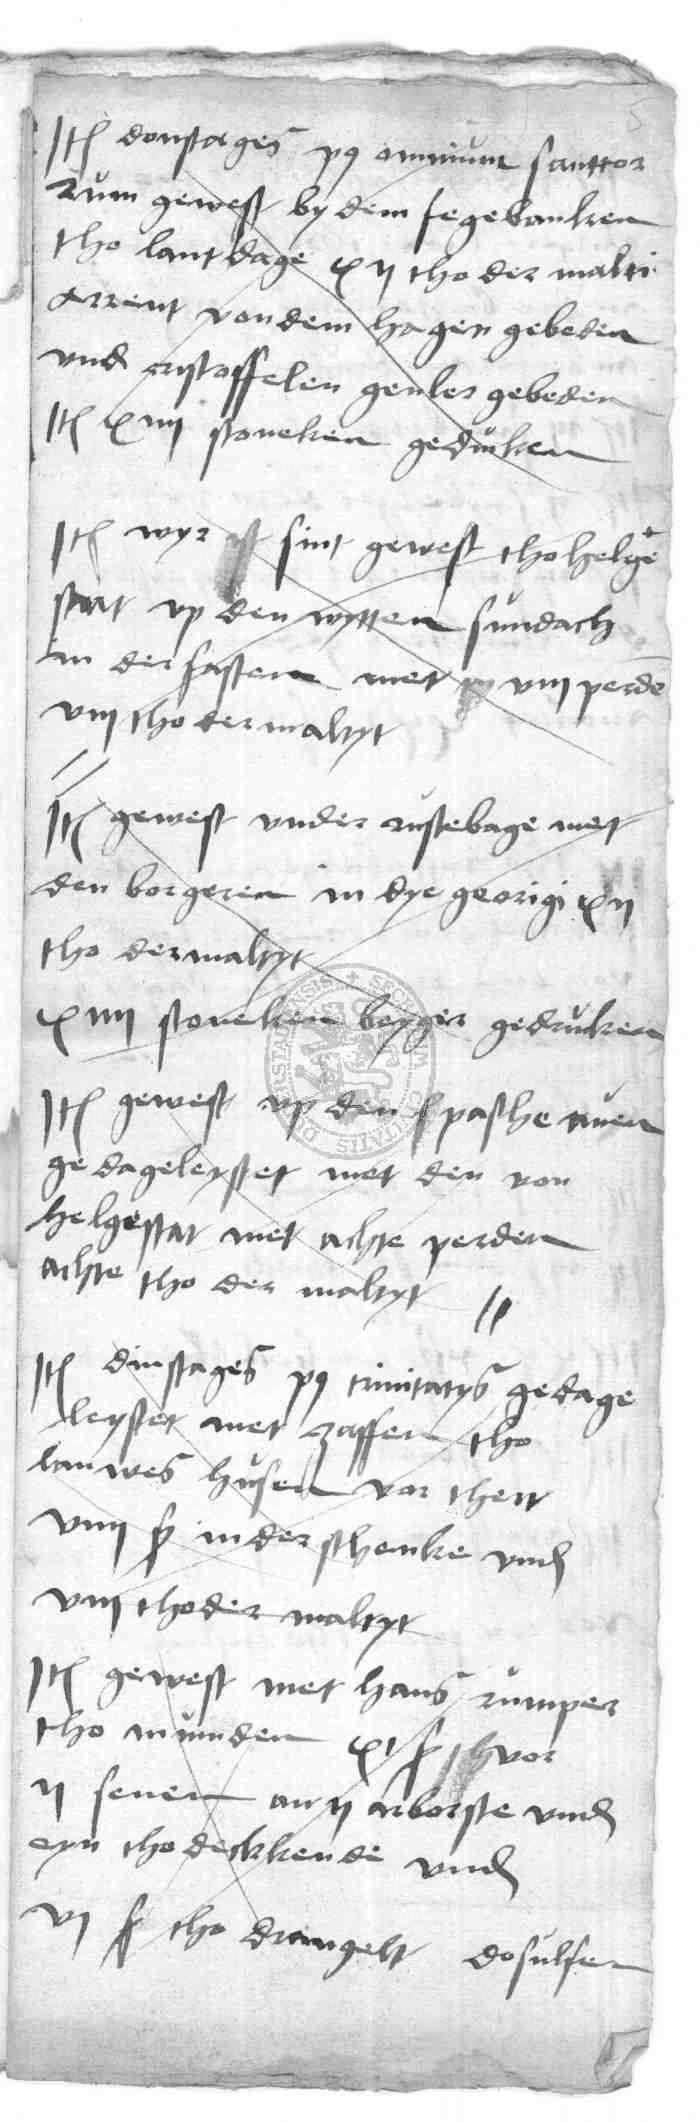 5
Jt donstages pꝯ omnium santtor
rum gewest by dem segebanken
tho lantdage xij tho der malti
arrent von dem hagen gebeden
vnd cristoffelen geuler gebeden
Jt xiiij stoveken gedruken

Jt wyr ist sint gewest tho helge
stat vp den wytten sundach
in der fasten met viij perde
viij tho der maltyt

Jt gewest vnder rustebage met
den borgeren in dye georigi xij
tho der maltyt
xiiij stoveken beyger gedruken

Jt gewest vp den pasche auen
gedageleystet met den von
helgestat met achte perden
achte tho der maltyt

Jt dinstages pꝯ trinitatys gedage
leystet met zaffen tho
lanwes husen vor thert
viiij ß in der schenke vnd
viij tho der maltyt

Jt gewest met hans rumper
tho munden xi ß vor
ij senen an ij arborste vnd
eyn tho deckkende vnd
vj ß tho drangelt dosulfen